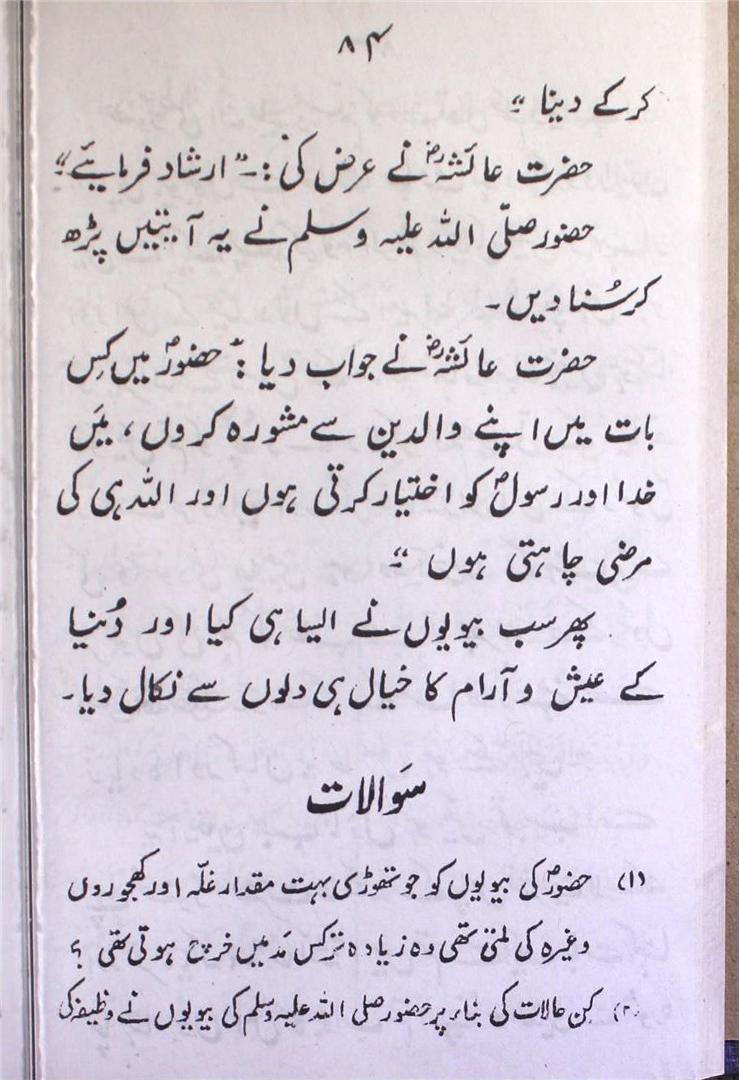 ۸۴
کرکے دینا ؛؛
حضرت عائشہؓ نے عرض کی :۔ " ارشاد فرمائیے ؛؛
حضور صلّی اللہ علیہ وسلم نے یہ آیتیں پڑھ
کر سُنا دیں ۔
حضرت عائشہؓ نے جواب دیا : " حضورؐ میں کِس
بات میں اپنے والدین سے مشورہ کروں ، مَیں
خدا اور رسولؐ کو اختیار کرتی ہوں اور اللہ ہی کی
مرضی چاہتی ہوں ؛؛
پھر سب بیویوں نے ایسا ہی کیا اور دُنیا
کے عیش و آرام کا خیال ہی دلوں سے نکال دیا ۔
سَوالات
(۱) حضورؐ کی بیویوں کو جو تھوڑی بہت مقدار غلّہ اور کھجوروں
وغیرہ کی ملتی تھی وہ زیادہ تر کس مَد میں خرچ ہوتی تھی ؟
(۲) کِن حالات کی بناء پر حضور صلی اللہ علیہ وسلم کی بیویوں نے وظیفہ کی